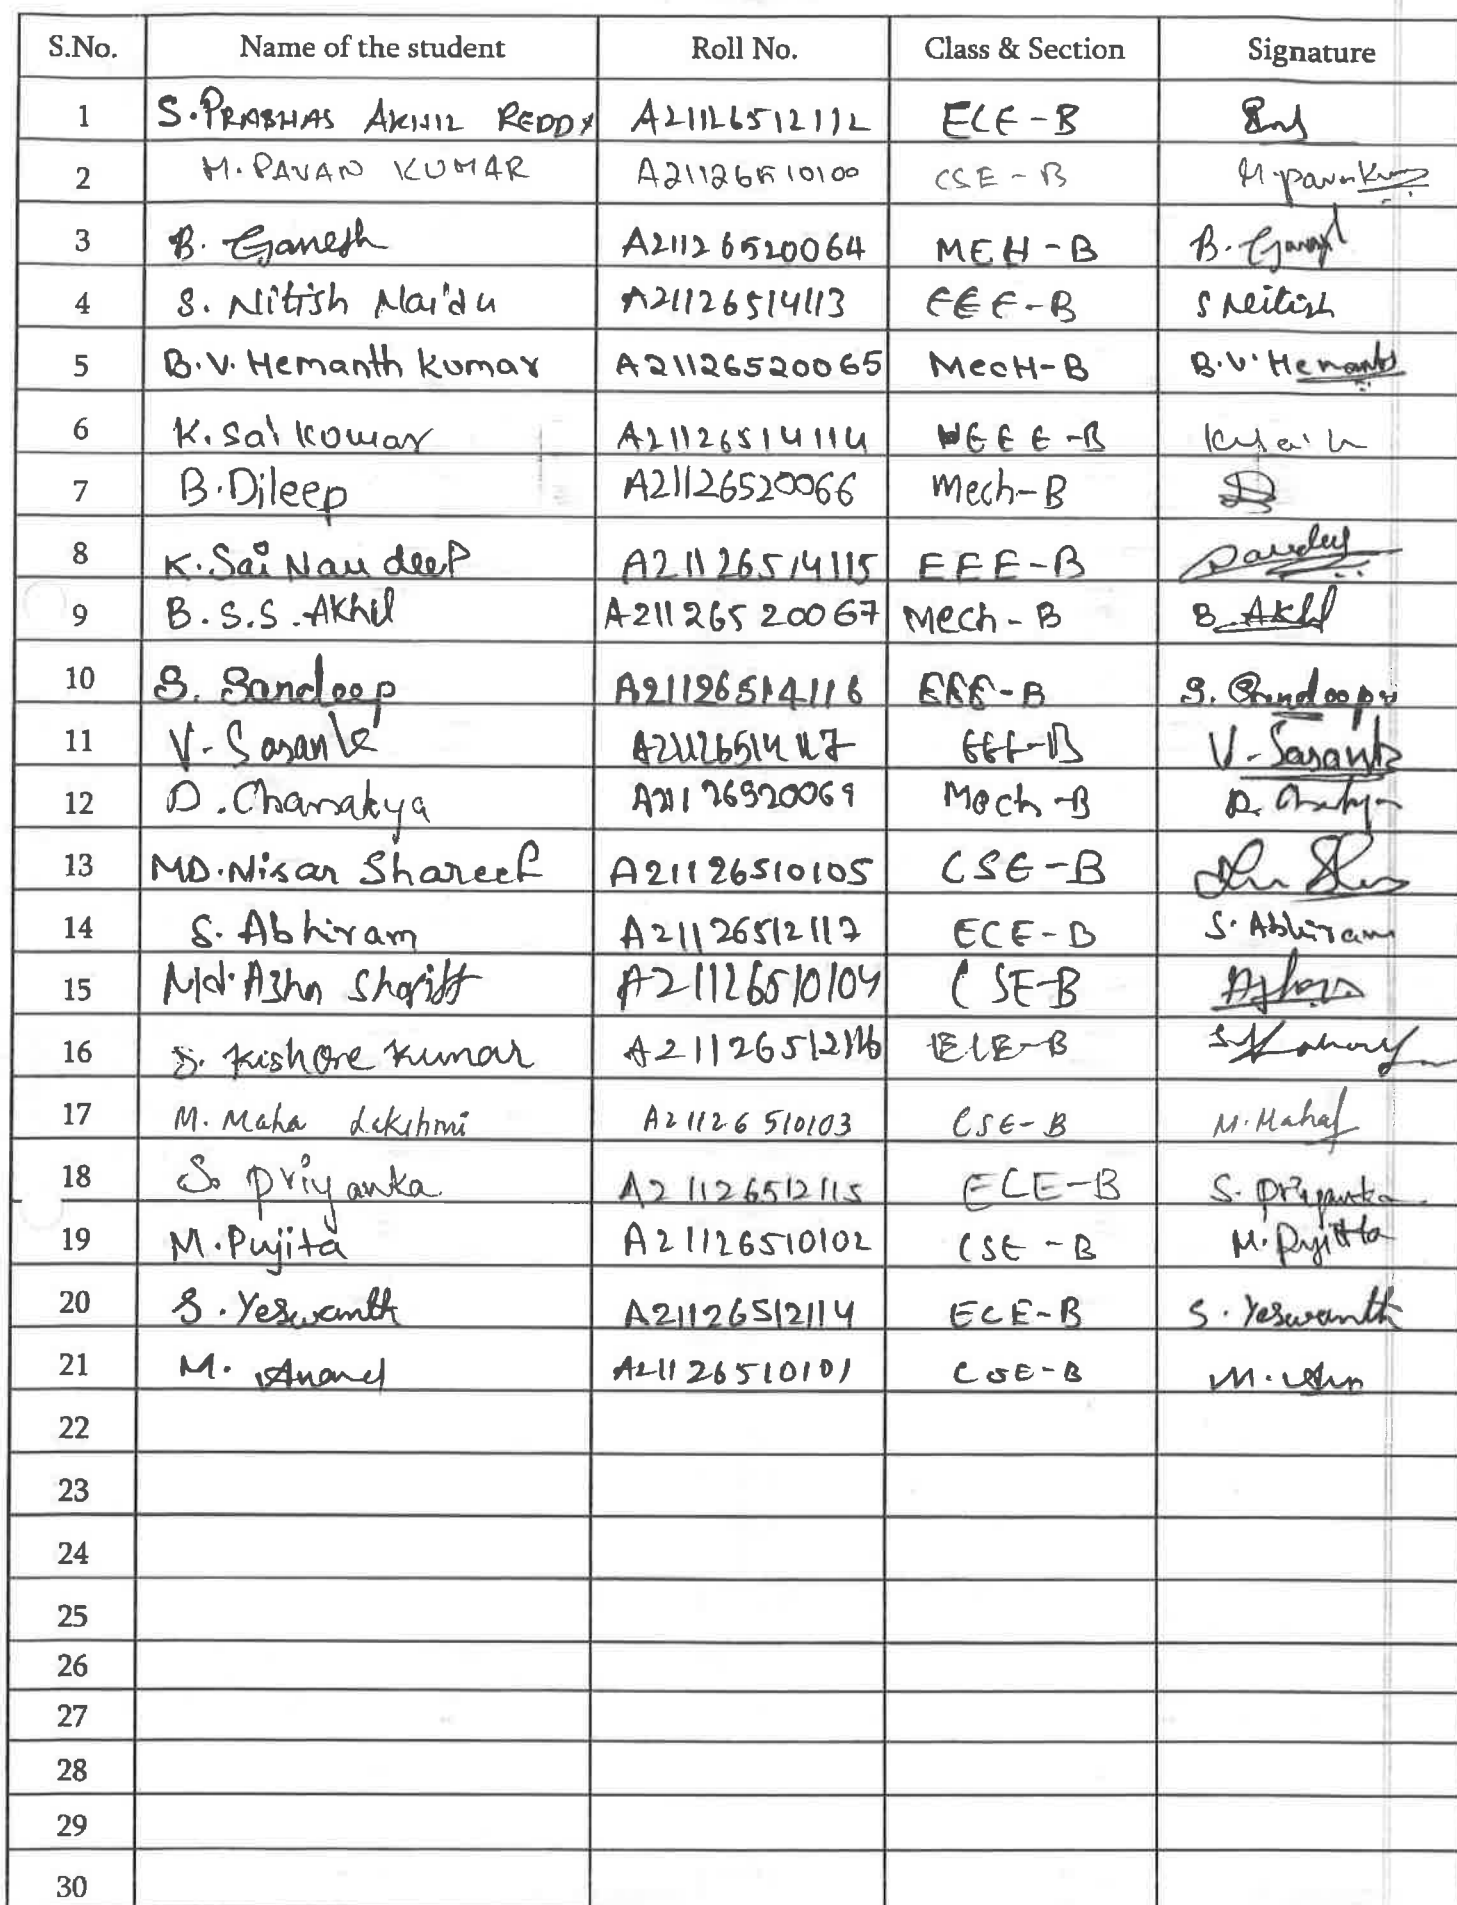 S.No. Name of the student Roll No. Class & Section Signature
1 S. PRABHAS AKHIL REDDY A21126512112 ECE-B
2 M. PAVAN KUMAR A21126510100 CSE-B M. pavan Kumar
3 B. Ganesh A21126520064 MEH-B B. Ganesh
4 S. Nitish Naidu A21126514113 EEE-B S Neitish
5 B.V. Hemanth Kumar A21126520065 MecH-B B.V. Hemanth
6 K. Sai Kumar A21126514114 EEE-B
7 B. Dileep A21126520066 Mech-B
8 K. Sai Nandeep A21126514115 EEE-B
9 B.S.S. Akhil A21126520067 Mech-B B. Akhil
10 S. Sandeep A21126514116 EEE-B S. Sandeep
11 V. Sasank A21126514117 EEE-B V. Sasank
12 D. Chanakya A21126520069 Mech-B
13 MD. Nisar Shareef A21126510105 CSE-B
14 S. Abhiram A21126512117 ECE-B S. Abhiram
15 Md. Azhn Shariff A21126510104 CSE-B
16 S. Kishore Kumar A21126512116 ECE-B
17 M. Maha Lakshmi A21126510103 CSE-B M. Maha
18 S. Priyanka A21126512115 ECE-B S. Priyanka
19 M. Pujita A21126510102 CSE-B M. Pujitta
20 S. Yeswanth A21126512114 ECE-B S. Yeswanth
21 M. Anand A21126510101 CSE-B
22
23
24
25
26
27
28
29
30